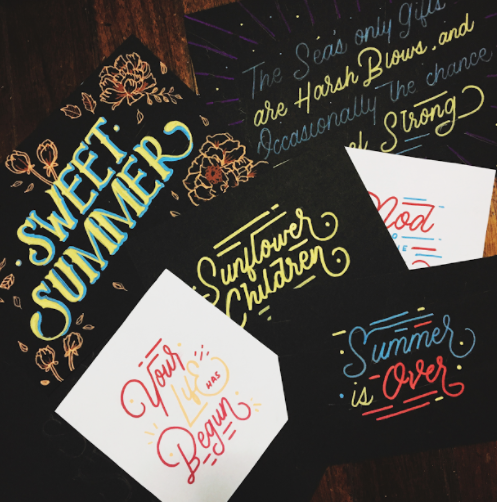 The Sea's only Gifts
are Harsh Blows and
Occasionally the chance
Strong
SWEET
SUMMER
Sunflower
Children
Summer
is Over
Your
Life HAS
Begun